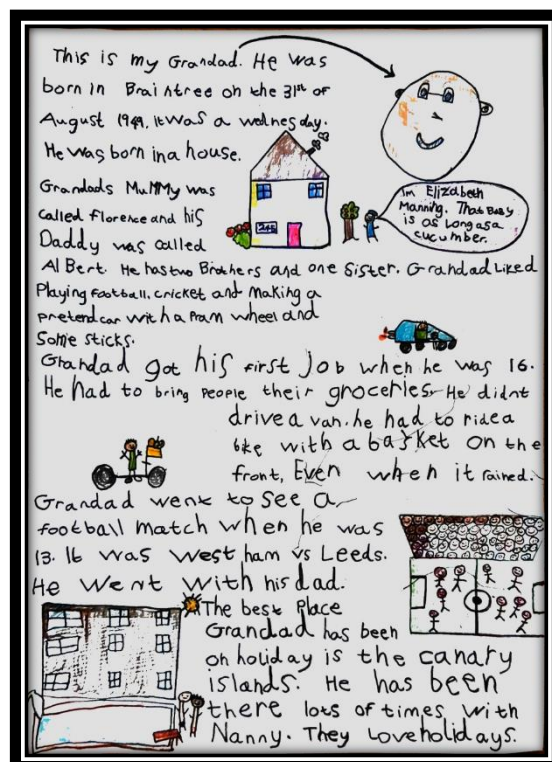 This is my Grandad. He was
born in Braintree on the 31st of
August 1949, it was a wednesday.
He was born in a house.
Grandads MuMMy was
called florence and his
Daddy was called
Al Bert. He has two Brothers and one Sister. Grandad Liked
Playing football, cricket and making a
pretend car with a Pram wheel and
Some sticks.
im Elizabeth
Manning. That Baby
is as Long as a
cucumber.
Grandad got his first Job when he was 16.
He had to bring people their groceries. He didnt
drive a van. he had to ride a
bike with a basket on the
front, Even when it rained.
Grandad went to see a
football match when he was
13. It was west ham vs Leeds.
He went with his dad.
The best Place
Grandad has been
on holiday is the canary
islands. He has been
there lots of times with
Nanny. They Love holidays.